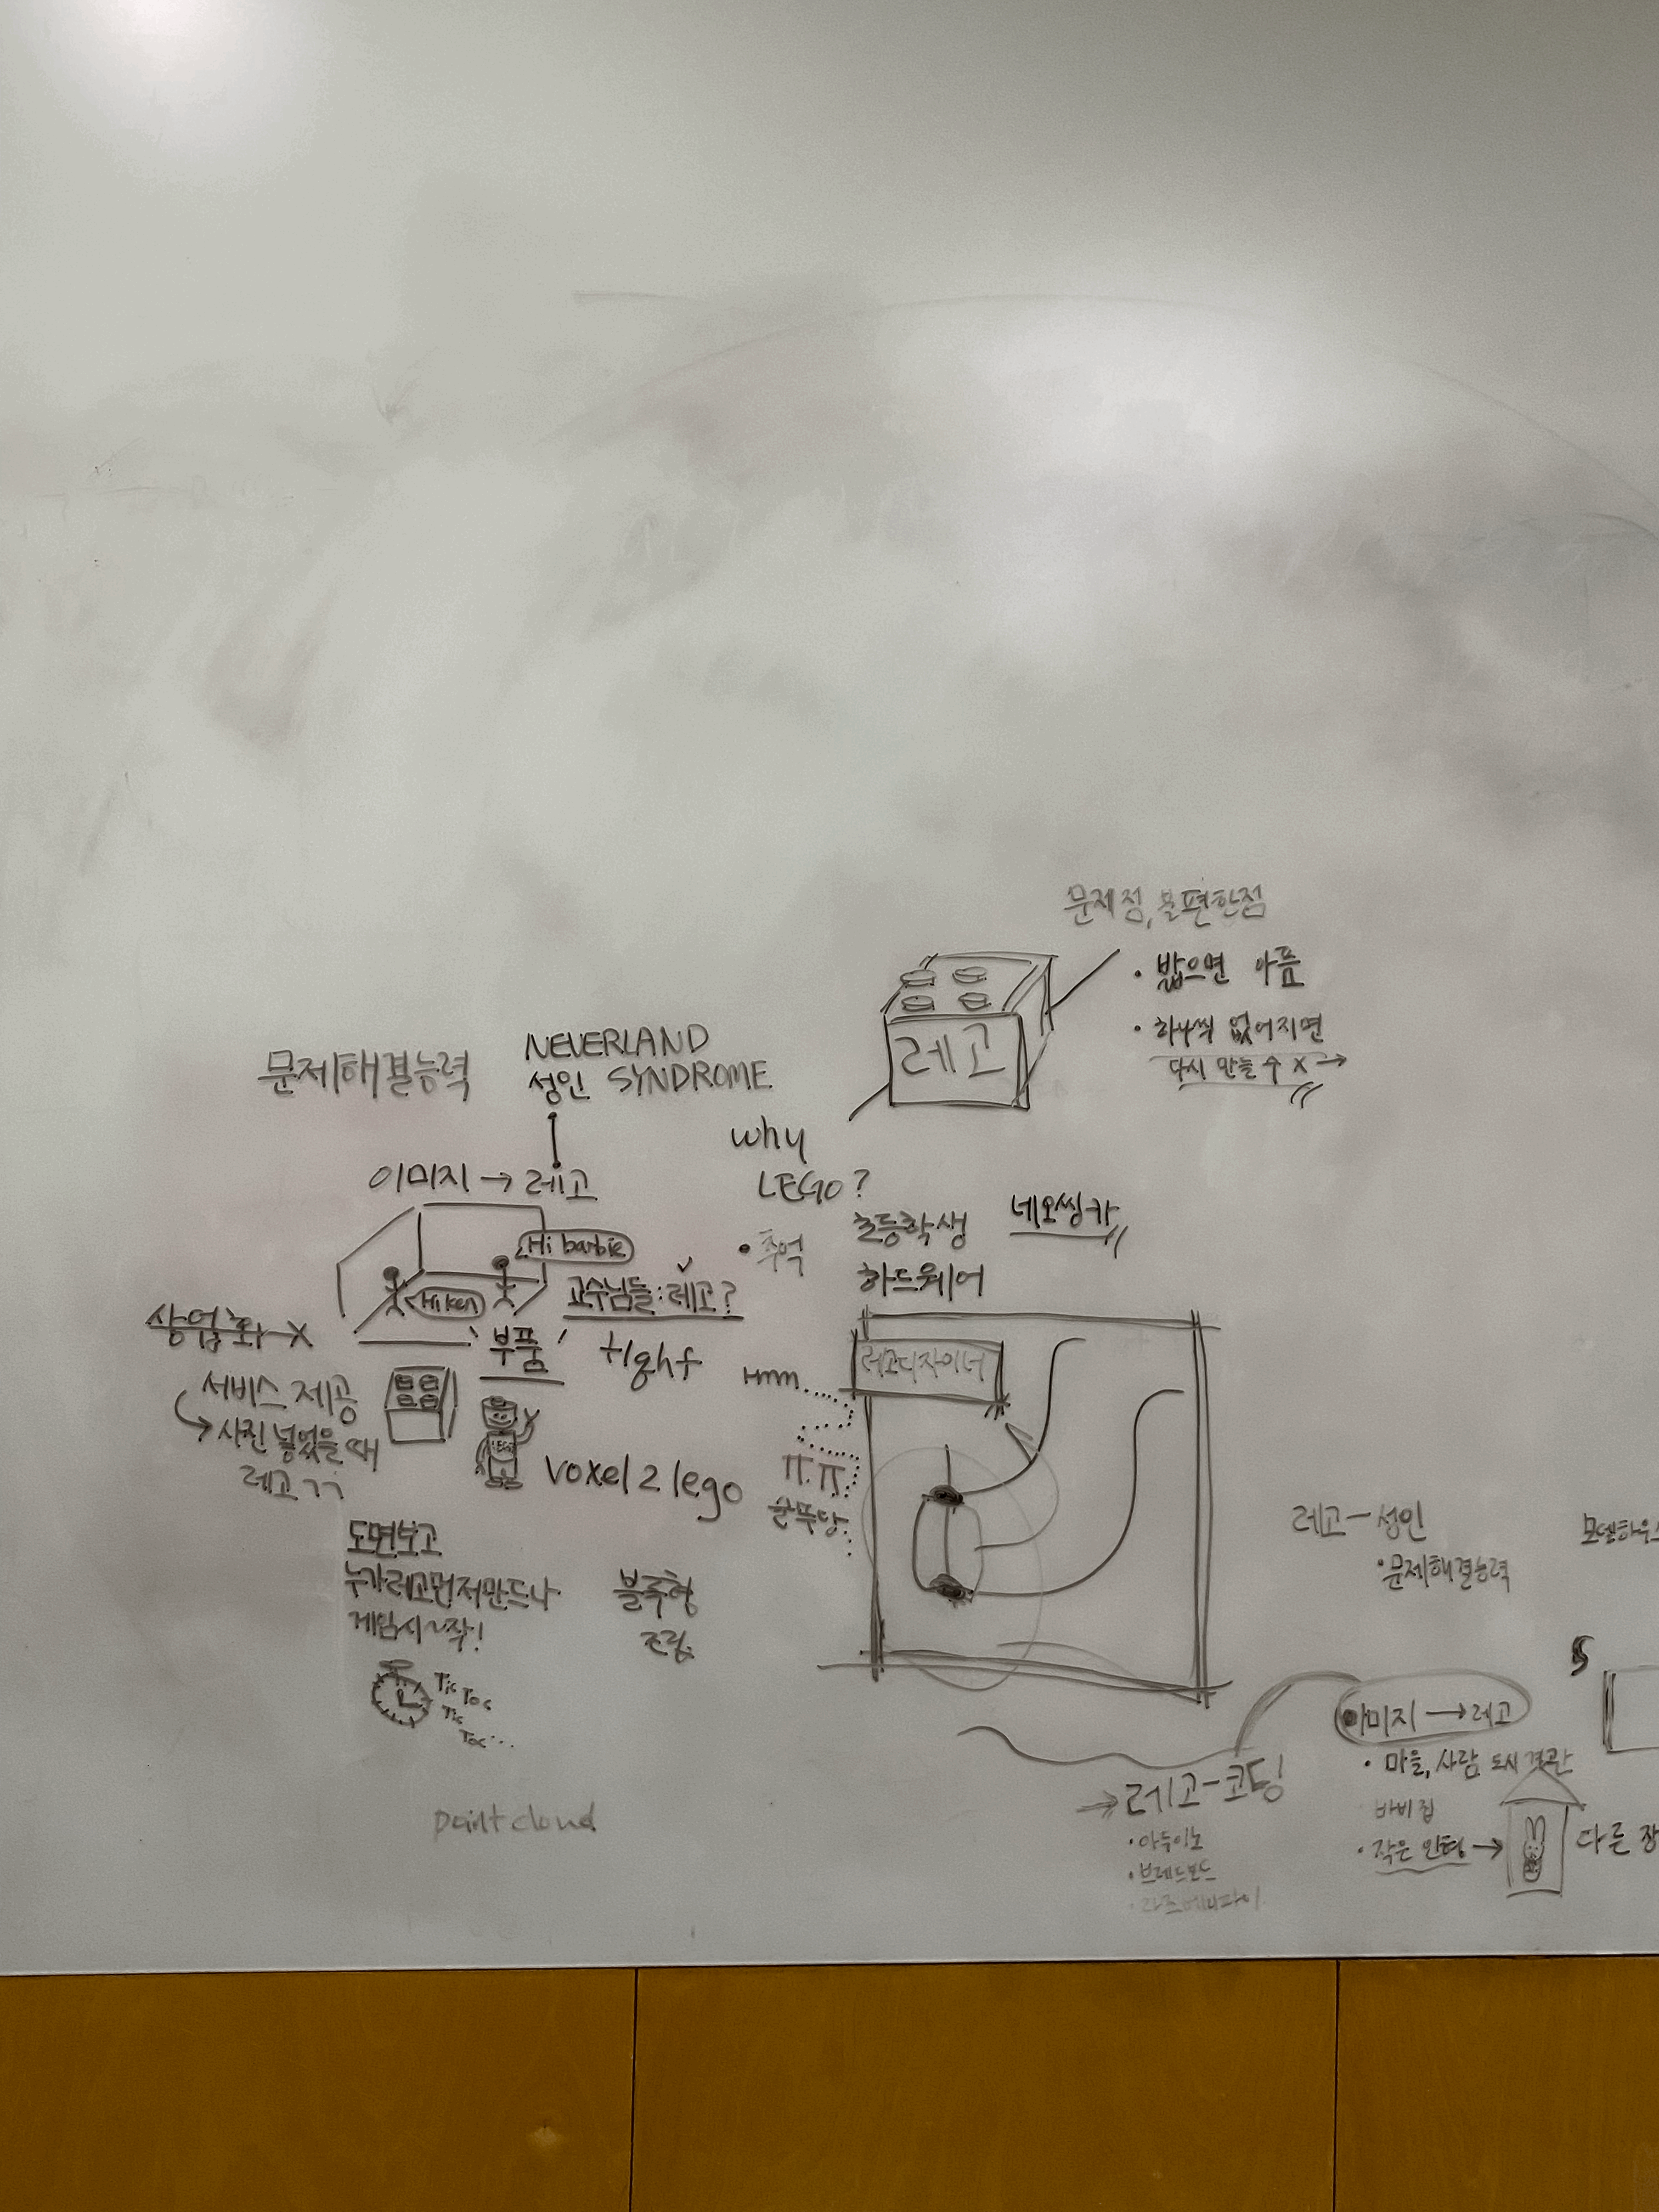 문제점, 불편한점
• 밟으면 아픔
• 하나씩 없어지면
다시 만들 수 X →
레고
NEVERLAND
성인 SYNDROME
문제해결능력
이미지 → 레고
Hi barbie
Hi Ken
교수님들 : 레고?
why
LEGO?
• 추억
초등학생
네오씽카
하드웨어
상업화 X
'부품'
tight
서비스 제공
→ 사진 넣었을 때
레고 ㄱㄱ
LEGO
voxel 2 lego
Hmm.....
ㅠ.ㅠ
레고디자이너
도면보고
누가레고먼저만드나
게임시~작!
Tic Toc
Tic
Toc...
블록형
조립
point cloud
레고 - 성인
• 문제해결능력
모델하우스
이미지 → 레고
• 마을, 사람, 도시경관
바비집
• 작은 인형 →
다른
→ 레고 - 코딩
• 아두이노
• 브레드보드
• 라즈베리파이